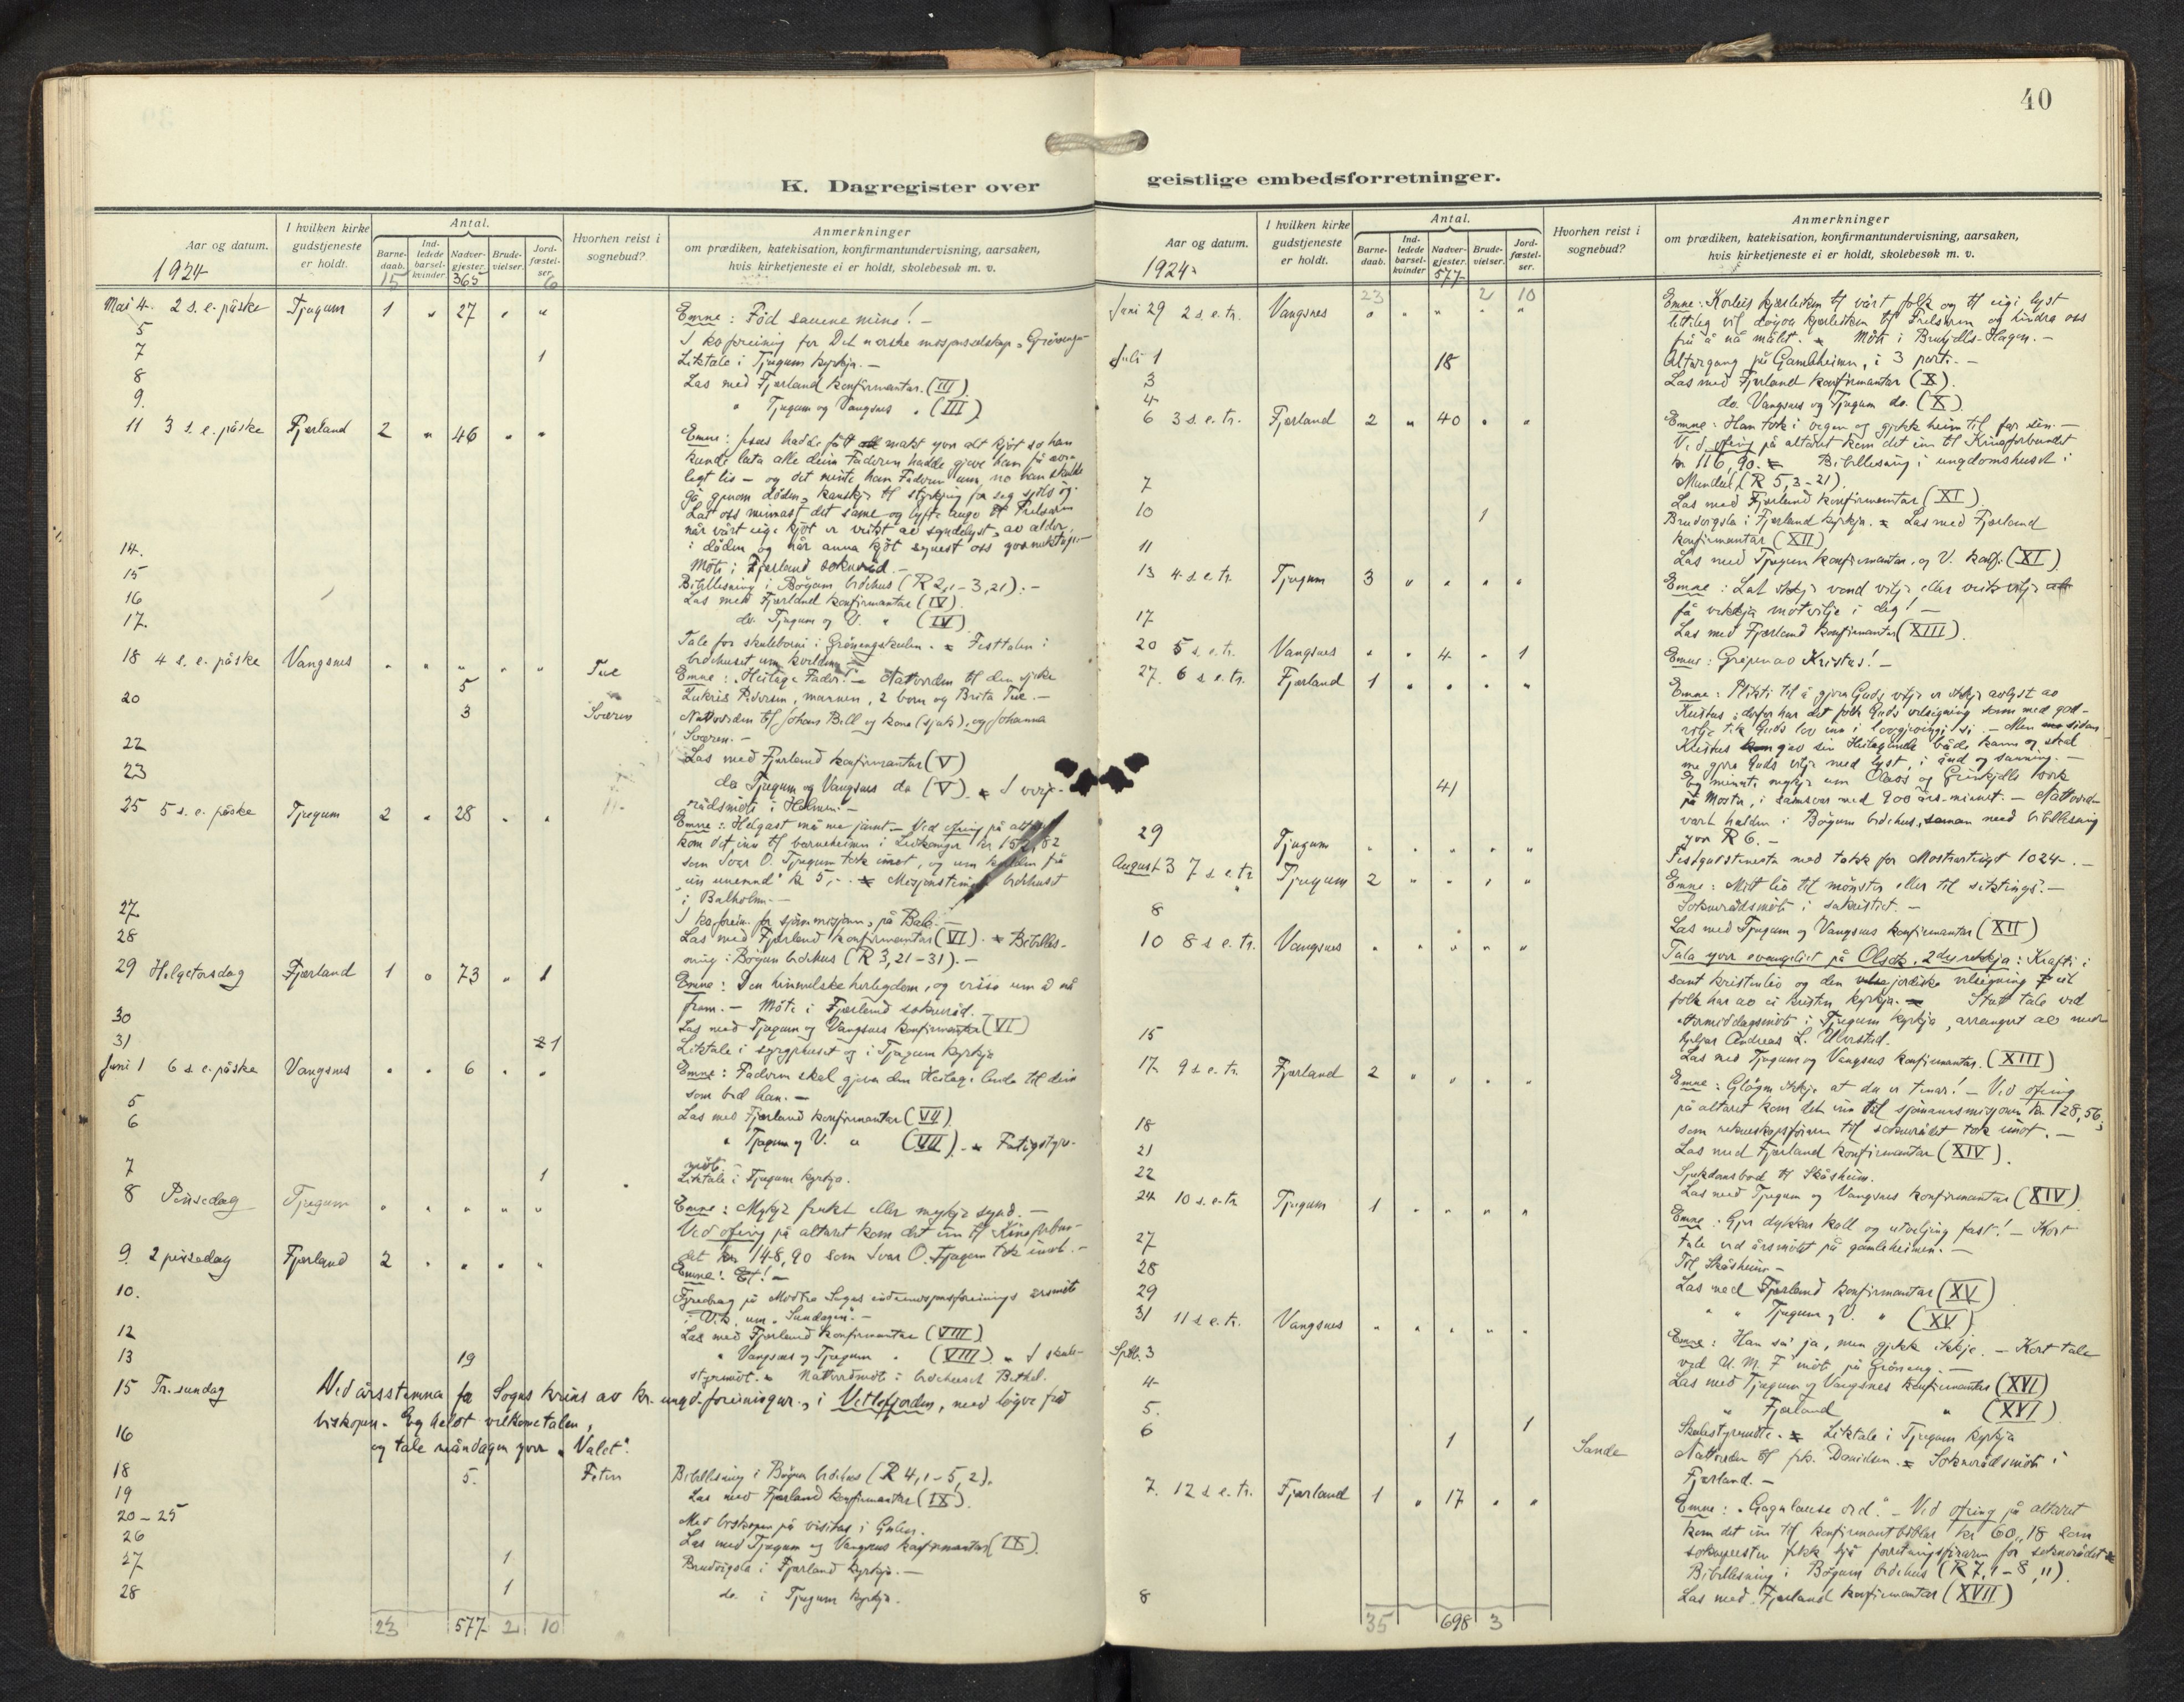 40
K. Dagregister over
Aar og datum.
1924
I hvilken kirke gudstjeneste er holdt.
Antal.
Barne-daab. Ind-ledede barsel-kvinder Nadver-gjester. Brude-vielser. Jord-fæstel-ser.
15 365 6
Hvorhen reist i sognebud?
Anmerkninger
om prædiken, katekisation, konfirmantundervisning, aarsaken,
hvis kirketjeneste ei er holdt, skolebesøk m. v.
Mai 4. 2 s. e. påske Tjugum 1 " 27 " " Emne: Fød sauene mine! -
5 I ko foreining for Det norske
7 1 Liktale i Tjugum kyrkja. -
8 Las med Fjærland konfirmantar. (III)
9. " Tjugum og Vangsnes " (III)
11 3 s. e. påske Fjærland 2 " 46 " " Emne: Jesus hadde fått makt yver alt kjøt so han
kunde lata alle deim Faderen hadde gjeve ham få
legt liv - og det minte han Faderen um no han skulde
gå gjenom døden,
Lat oss minnast det same og lyfta augo til Frelsaren
når vårt eige kjøt er
i døden og når anna kjøt synest oss
14. Møte i Fjærland sokneråd. -
15 Bibellesning i Bøyum bedehus (R 2,1 - 3,21). -
16 Las med Fjærland konfirmantar (IV).
17. do. Tjugum og V. " (IV)
Tale for skuleborni i Grønengskulen. Festtalen i
18 4 s. e. påske Vangsnes " " " " " Tue bedehuset um kvelden
5 Emne: "Heilage Fader!" - Nattverden til den sjuke
mannen, 2 born og Brita Tue. -
20 3 Sværen Nattverden til Johans Bell og kona (sjuk), og Johanna
Sværen. -
22 Las med Fjærland konfirmantar (V)
23 do Tjugum og Vangsnes do (V).
rådsmøte i Holmen. -
25 5 s. e. påske Tjugum 2 " 28 " " Emne: Helgast må me jamt. - Ved ofring på altaret
kom det inn til barneheimen i Leikanger kr
som Ivar O. Tjugum tok imot, og um kvelden frå
"ein unemnd" kr 5,-. Misjonstime i bedehuset
i Balholm. -
27 I ko forein. for sjømmisjonen, på Bale. -
28 Las med Fjærland konfirmantar (VI). Bibelles-
ning i Bøyum bedehus (R 3,21-31). -
29 Helgetorsdag Fjærland 1 " 73 " 1 Emne: Den himmelske herlegdom, og vissa um å nå
fram. - Møte i Fjærland sokneråd.
30 Las med Tjugum og Vangsnes konfirmantar (VI)
31 1 Liktale i syrgjehuset og i Tjugum kyrkja
Juni 1 6 s. e. påske Vangsnes " " 6 " " Emne: Faderen skal gjeva den Heilage Ande til deim
som bed han. -
5 Las med Fjærland konfirmantar (VII)
6 " Tjugum og V. " (VII). - Fatigstyre-
møte
7 1 Liktale i Tjugum kyrkja.
8 Pinsedag Tjugum " " " " " Emne: Mykje frukt eller mykje synd. -
Ved ofring på altaret kom det inn til Kinaforbun-
det kr. 148,90 som Ivar O. Tjugum tok imot. -
9. 2 pinsedag Fjærland 2 " " " " Emne: Et! -
10. Fyredrag på Midtre Sogns indremisjonsforeinings årsmøte
i Vik um "Sundagen". -
12 Las med Fjærland konfirmantar (VIII)
13 19 " Vangsnes og Tjugum " (VIII) " I skule-
styremøte. Nattverdmøte i bedehuset Bethel.
15 Tr. sundag Ved årsstemna for Sogns krins av kr. ungd. foreiningar, i Vetlefjorden, med løyve frå
biskopen. Eg heldt velkometalen,
16 og tale måndagen yver "Valet".
18 5. Feten Bibellesning i Bøyum bedehus (R 4,1-5,2).
19 Las med Fjærland konfirmantar (IX).
20-25 Med biskopen på visitas i Gulen.
26 Las med Tjugum og Vangsnes konfirmantar (IX).
27 1 Brudvigsla i Fjærland kyrkja. -
28 1 do. i Tjugum kyrkja.
23 577 2 10
geistlige embedsforretninger.
Aar og datum.
1924
I hvilken kirke gudstjeneste er holdt.
Antal.
Barne-daab. Ind-ledede barsel-kvinder Nadver-gjester. Brude-vielser. Jord-fæstel-ser.
577
Hvorhen reist i sognebud?
Anmerkninger
om prædiken, katekisation, konfirmantundervisning, aarsaken,
hvis kirketjeneste ei er holdt, skolebesøk m. v.
23 2 10
Juni 29 2 s. e. tr. Vangsnes " " " " " Emne: Korleis kjærleiken til vårt folk og til eigi lyst
lettleg vil døyva kjærleiken til Frelsaren og hindra oss
frå å nå målet. Møte i
Juli 1 18 Altargang på Gamleheimen, i 3 part. -
3 Las med Fjærland konfirmantar (X).
4 do. Vangsnes og Tjugum do. (X)
6 3 s e tr. Fjærland 2 " 40 " " Emne: Han tok i vegen og gjekk heim til far sin. -
Ved ofring på altaret kom det inn til Kinaforbundet
kr 116,90. Bibellesning i ungdomshuset i
Mundal (R 5,3-21).
7 Las med Fjærland konfirmantar (XI)
10 1 Brudvigsla i Fjærland kyrkja. Las med Fjærland
konfirmantar (XII)
11 Las med Tjugum konfirmantar, og V. konf. (XI)
13 4 s e tr. Tjugum 3 " " " " Emne: Lat ikkje vond vilje eller veik vilje
få vekkja motvilje i deg! -
17 Las med Fjærland konfirmantar (XIII).
20 5 s. e. tr. Vangsnes " " 4 " 1 Emne: Gripen av Kristus! -
27. 6 s e tr. Fjærland 1 " " " " Emne: Plikti til å gjera Guds vilje er ikkje avlyst av
Kristus; derfor har det folk Guds velsigning som med god-
vilje tek Guds lov inn i lovgjevingi si. - Men sidan
Kristus gav sin Heilagande både kann og skal
me gjera Guds vilje med lyst, i ånd og sanning. -
41 Eg minnte mykje um Olavs og Grimkjells verk
på Moster, i samsvar med 900 års-minnet. - Nattverd-
vart halden i Bøyum bedehus, saman med bibellesning
yver R 6. -
29 Tjugum " " " " " Festgudstenesta med takk for Mostratinget 1024. -
August 3 7 s e tr Tjugum 2 " " " " Emne: Mitt liv til mønster eller til
Soknerådsmøte i sakristiet. -
8 Las med Tjugum og Vangsnes konfirmantar (XII)
10 8 s e. tr. Vangsnes " " " " " Tala yver evangeliet på Olsok, 2dre rekkja: Krafti i
sant kristenliv og den jordiske velsigning eit
folk har av ei kristen kyrkja. Stutt tale ved
ettermiddagsmøte i Tjugum kyrkja, arrangert av
Andreas L. Ulvestad.
15 Las med Tjugum og Vangsnes konfirmantar. (XIII)
17 9 s e. tr. Fjærland 2 " " " " Emne: Gløym ikkje at du er tenar! - Ved ofring
på altaret kom det inn til sjømannsmisjonen kr 128,56,
som rekneskapsføraren til soknerådet tok imot. -
18 Las med Fjærland konfirmantar (XIV).
21 Sjukdomsbod til Skåsheim.
22 Las med Tjugum og Vangsnes konfirmantar (XIV)
24 10 s. e. tr Tjugum 1 " " " " Emne: Gjer dykkar kall og utveljing fast! - Kort
tale ved årsmøtet på gamleheimen. -
27 Til Skåsheim -
28 Las med Fjærland konfirmantar (XV)
29 " " Tjugum og V. " (XV)
31 11 s e. tr. Vangsnes " " " " " Emne: Han sa ja, men gjekk ikkje. - Kort tale
Septb. 3 ved U. M. F møte på Grøneng. -
4 Las med Tjugum og Vangsnes konfirmantar (XVI)
5. " Fjærland " (XVI)
6 1 Skulestyremøte. Liktale i Tjugum kyrkja
1 Sande Nattverden til frk. Danielsen. Soknerådsmøte i
Fjærland. -
7. 12 s e. tr. Fjærland 1 " 17 " " Emne: "Gagnlause ord." - Ved ofring på altaret
kom det inn til konfirmantbiblar kr 60,18 som
soknepresten fekk hjå forretningsføraren for soknerådet
Bibellesning i Bøyum bedehus (R 7,1-8,11).
8 Las med Fjærland konfirmantar (XVII)
35 698 3